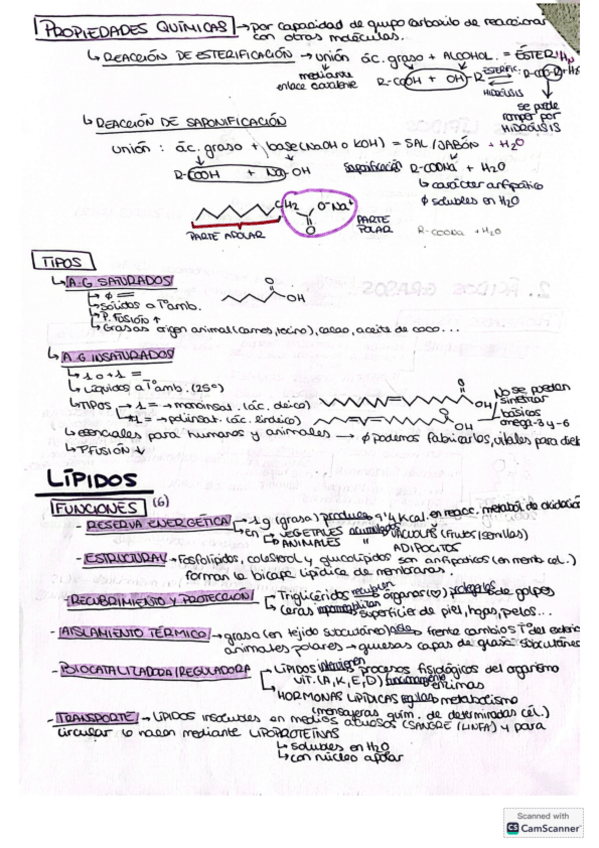 PROPIEDADES QUÍMICAS → por capacidad de grupo carboxilo de reaccionar
con otras moléculas.
↳ REACCIÓN DE ESTERIFICACIÓN → unión ác. graso + ALCOHOL. = ÉSTER
mediante
enlace covalente
R-COOH + OH-R
HIDRÓLISIS
se puede
romper por
HIDRÓLISIS
↳ REACCIÓN DE SAPONIFICACIÓN
unión : ác. graso + base (NaOH o KOH) = SAL/JABÓN + H2O
R-COOH + Na-OH Saponificación R-COONa + H2O
↳ carácter anfipático
ϕ solubles en H2O
CH2 O⁻Na⁺
O
PARTE APOLAR
PARTE
POLAR
R-COONa + H2O
TIPOS
↳ A.G SATURADOS
↳ ϕ =
↳ sólidos a Tº amb.
↳ P. FUSIÓN ↑
↳ Grasas origen animal (carnes, tocino), cacao, aceite de coco...
O
OH
↳ A.G INSATURADOS
↳ 1 o + 1 =
↳ Líquidos a Tº amb. (25º)
↳ TIPOS → 1 = → monoinsat. (ác. oleico)
+1 = → poliinsat. (ác. linoleico)
O
OH
O
OH
No se pueden
sintetizar
básicos
omega-3 y -6
↳ esenciales para humanos y animales → ϕ podemos fabricarlos, vitales para
↳ P. FUSIÓN ↓
LÍPIDOS
FUNCIONES (6)
- RESERVA ENERGÉTICA → 1g (graso) produce 9'4 Kcal. en reacc. metabol. de oxidación
en VEGETALES acumulados VACUOLAS (frutos, semillas)
ANIMALES " ADIPOCITOS
- ESTRUCTURAL → Fosfolípidos, colesterol y glucolípidos son anfipáticos (en memb cel.)
forman la bicapa lipídica de membranas.
- RECUBRIMIENTO Y PROTECCIÓN → Triglicéridos recubren órganos protegerlos de golpes
ceras impermeabilizan superficie de piel, hojas, pelos...
- AISLAMIENTO TÉRMICO → graso (en tejido subcutáneo) aísla frente cambios Tº del exterior
animales polares → gruesas capas de grasa subcutánea
- BIOCATALIZADORA/REGULADORA → LÍPIDOS intervienen procesos fisiológicos del organismo
VIT. (A, K, E, D) enzimas
HORMONAS LIPÍDICAS regulan metabolismo
(mensajeras quím. de determinadas cél.)
- TRANSPORTE → LÍPIDOS insolubles en medios acuosos (SANGRE/LINFA) y para
circular lo hacen mediante LIPOPROTEÍNAS
↳ solubles en H2O
↳ con núcleo apolar
Scanned with
CS CamScanner